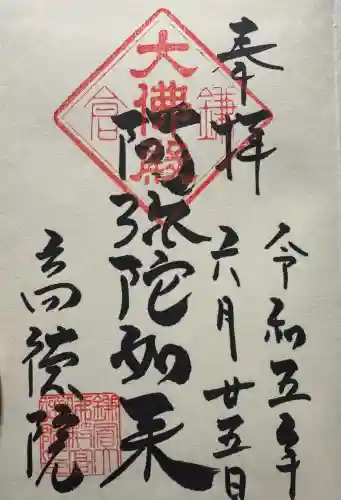 奉拝
令和五年
六月廿五日
阿弥陀如来
高徳院
大佛殿
鎌倉